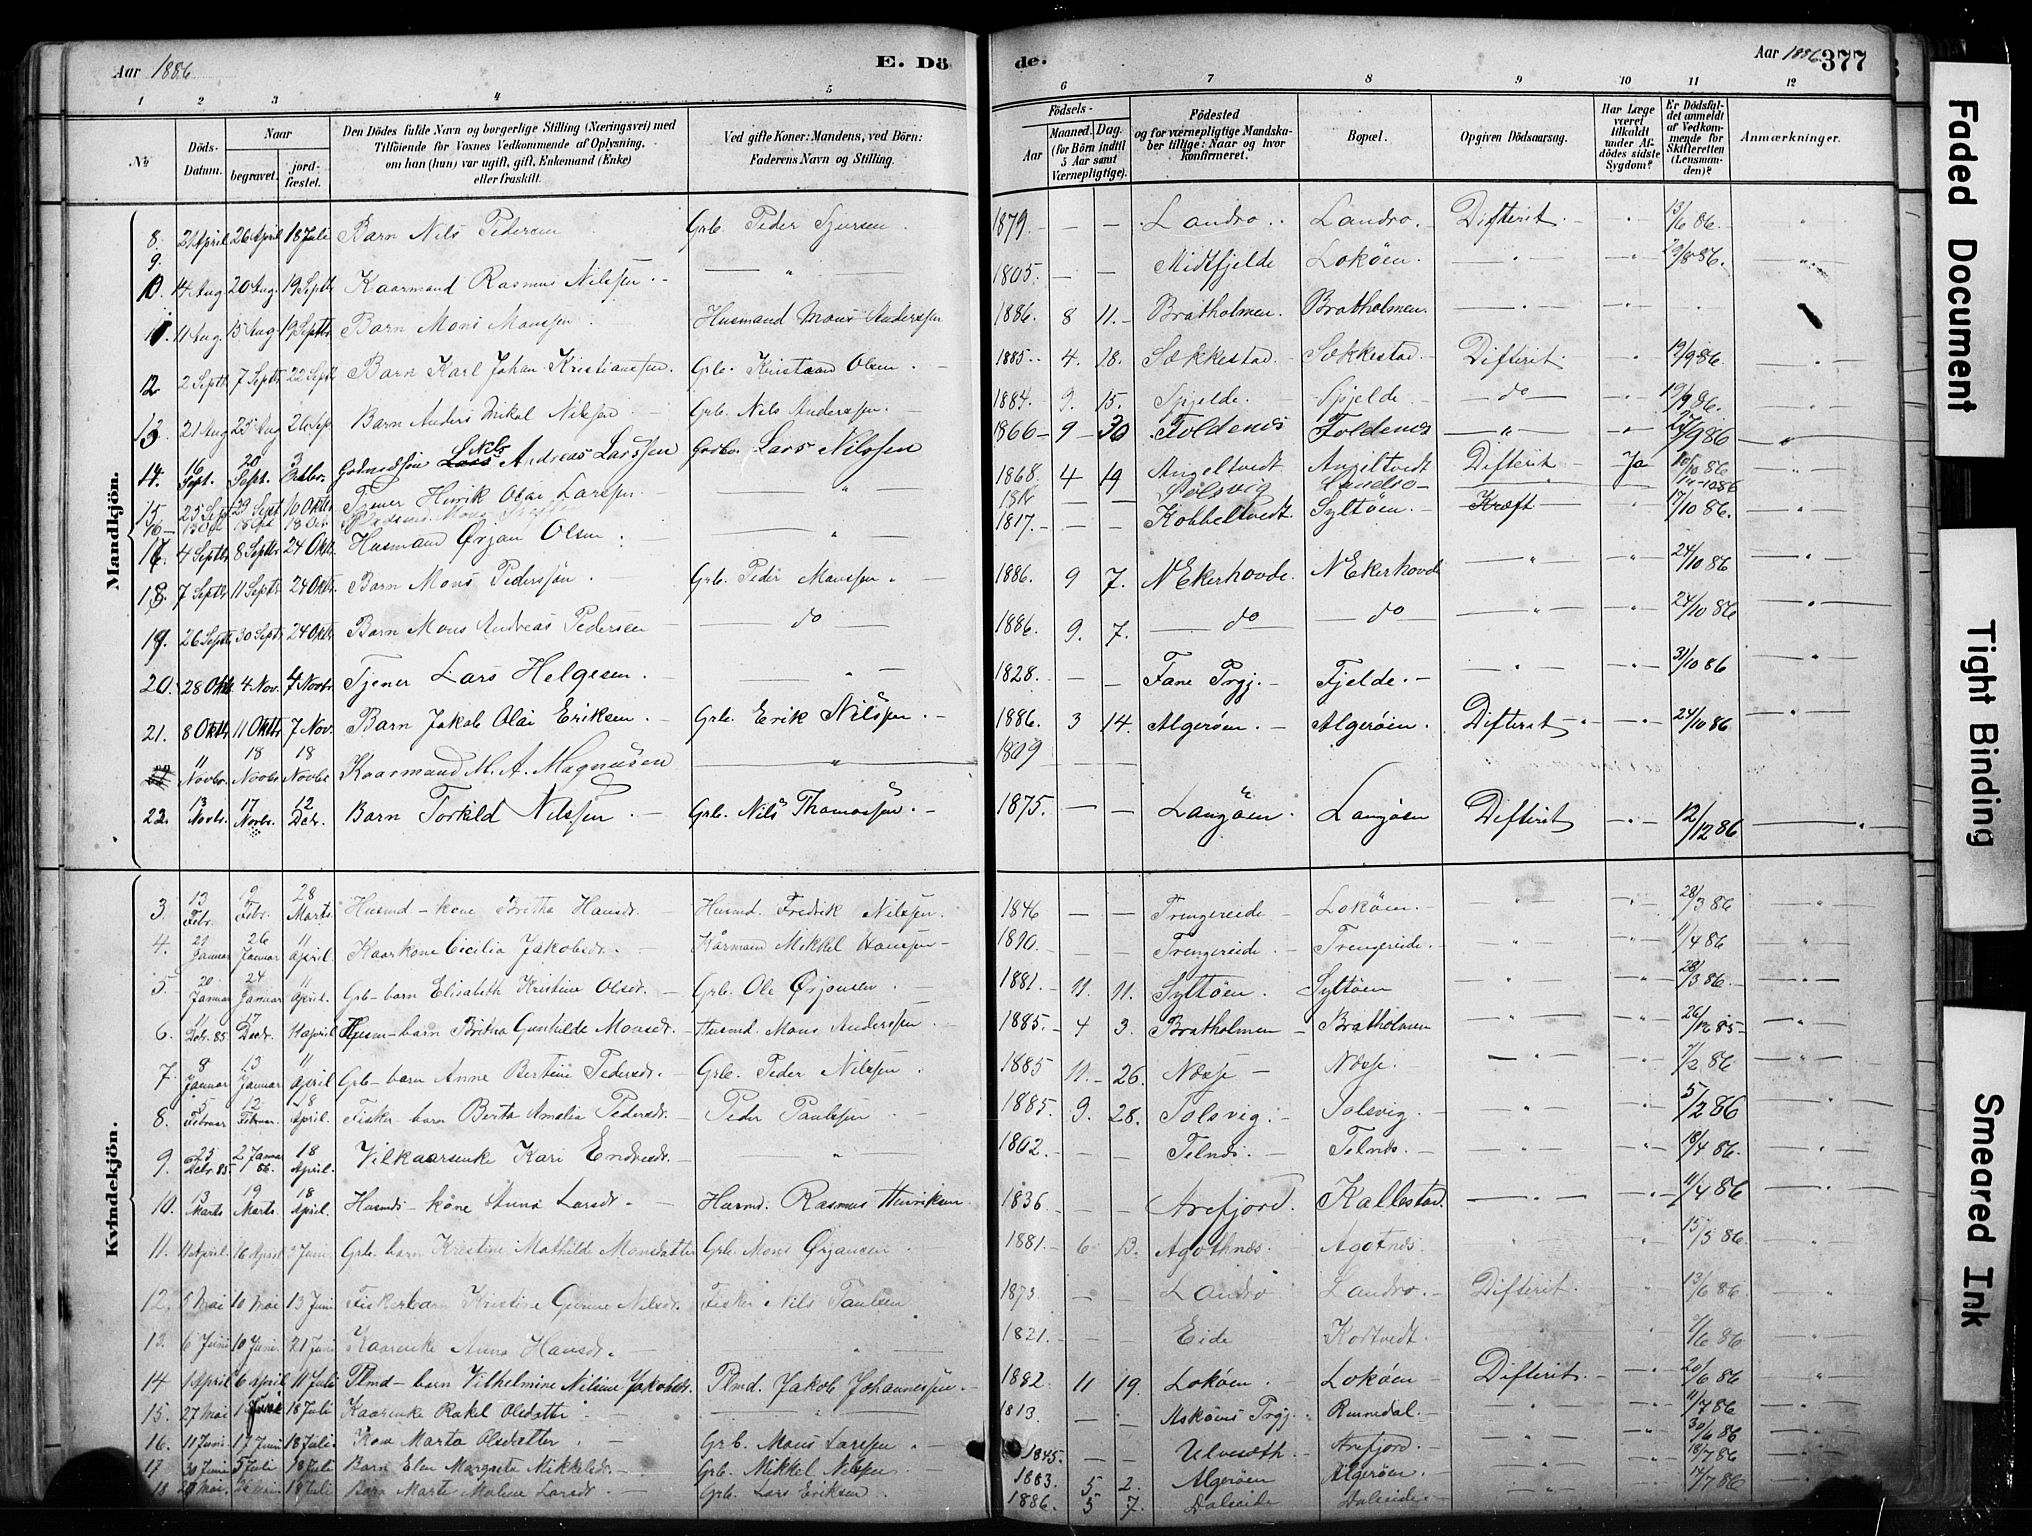 Aar 1886 E. Dö de. Aar 1886 377
1 2 3 4 5 6 7 8 9 10 11 12
No Döds-Datum. Naar begravet. jordfæstet. Den Dödes fulde Navn og borgerlige Stilling (Næringsvei) med Tilföiende for Voxnes Vedkommende af Oplysning, om han (hun) var ugift, gift, Enkemand (Enke) eller fraskilt. Ved gifte Koner: Mandens, ved Börn: Faderens Navn og Stilling. Födsels- Aar Maaned. Dag. (for Börn indtil 5 Aar samt Værnepligtige). Födested og for værnepligtige Mandskaber tillige: Naar og hvor konfirmeret. Bopæl. Opgiven Dödsaarsag. Har Læge været tilkaldt under Afdödes sidste Sygdom? Er Dödsfaldet anmeldt af Vedkommende for Skifteretten (Lensmanden)? Anmærkninger.
Mandkjön.
8. 21 April 26 April 18 Juli Barn Nils Pedersen Grb. Peder Sjursen 1879. — — Landro. Landro. Difterit. 13/6 86.
9.
10. 14 Aug 20 Aug. 19 Septb Kaarmand Rasmus Nilssen. 1805. — — Midtfjelde Loköen. 29/8 86.
11. 11 Aug. 15 Aug. 19 Septbr Barn Mons Monssen Husmand Mons Anderssen 1886. 8 11. Bratholmen. Bratholmen.
12 2 Septb 7 Septb 22 Septb Barn Karl Johan Kristianssen. Grb. Kristian Olsen. 1885. 4. 18. Sækkestad. Sekkestad. Difterit 19/9 86.
13 21 Aug 25 Aug 26 Sep. Barn Anders Mikal Nilssen Grb. Nils Anderssen. 1884. 9. 15. Spjelde. Spjelde. do 19/9 86.
14. 16 Sept. 20 Sept. 3 Gaardmandssön Nils Andreas Larssen Grbr. Lars Nilssen 1866 9 30 Foldenes Foldenes 27/9 86
15 25 Sept 29 Sept 10 Oktb Tjener Henrik Olai Larssen 1868. 4 19 Angeltvedt Angeltvedt Difterit Ja 10/10 86
16 Solsvig Landro
17. 4 Septbr 8 Septbr 24 Oktb. Husmand Ørjan Olsen 1817. — — Kobbeltvedt. Syltöen. Kræft 17/10 86.
18. 7 Septbr 11 Septbr 24 Oktbr. Barn Mons Pederssön Grb. Peder Monssen. 1886. 9 7. N Ekerhovde. N Ekerhovde 24/10 86
19. 26 Septb 30 Septb 24 Oktb Barn Mons Andreas Pedersen do 1886. 9. 7. do do 24/10 86
20. 28 Oktb 4 Nov. 7 Novbr Tjener Lars Helgesen. 1828. — — Fane Prgj. Fjelde. 31/10 86
21. 8 Oktb 11 Oktb 7 Nov. Barn Jakob Olai Eriksen. Grb. Erik Nilssen. 1886. 3 14. Algeröen. Algeröen. Difterit 24/10 86
11 Novbr. 18 Novbr. 18 Novbr Kaarmand M. A. Magnusen 1809
22. 13 Novbr. 17 Novbr. 12 Debr. Barn Torkild Nilssen. Grb. Nils Thomassen. 1875. — — Langöen. Langöen Difterit 12/12 86
Kvindekjön.
3. 13 Febr. Febr. 28 Marts Husmd-kone Britha Hansdr. Husmd. Fredrik Nilssen. 1846 — — Trengereide Loköen. 28/3 86
4. 21 Januar 26 Januar 11 April. Kaarkone Cicilia Jakobsdr. Kårmand Mikkel Hanssen 1810. — — Trengereide. Trengereide. 11/4 86
5. 20 Januar 24 Januar 11 April. Grb-barn Elisabeth Kristine Olsdr. Grb. Ole Ørjansen. 1881. 11. 11. Syltöen. Syltöen 28/3 86.
6. 11 Debr. 85 17 Decbr. 11 April Husm-barn Britha Gunhilde Monsdr. Husmd. Mons Anderssen. 1885. 4 3. Bratholmen Bratholmen 26/12 85
7. 8 Januar 13 Januar 11 April Grb-barn Anne Bertine Pedersdr. Grb. Peder Nilssen. 1885 11. 26. Nesse Nesse. 7/2 86
8. 5 Februar 12 Februar. 18 April. Fisker barn Berta Amalia Pedersdr. Peder Paulssen 1885. 9. 28. Solsvig. Solsvig. 5/2 86
9. 25 Debr. 85 2 Januar 86. 18 April. Vilkaarsenke Kari Endresdr. 1802. Telnes. Telnes. 18/4 86.
10. 13 Marts 19 Marts. 18 April. Husmds-kone Anna Larsdr. Husmd. Rasmus Henriksen 1836 — — Arefjord. Kallestad. 11/4 86
11. 11 April. 16 April Juni. Grb. barn Kristine Mathilde Monsdatter Grb. Mons Ørjansen. 1881. 6 13. Agothnes. Agotnes. 15/5 86.
12. 5 Mai 10 Mai 13 Juni Fiskerbarn Kristine Nilsdr. Fisker Nils Paulsen 1873. — — Landro Landro. Difterit. 13/6 86.
13. 6 Juni 10 Juni. 21 Juni Kaarenke Anna Hansdr. 1821. — — Eide Kortvedt. 7/6 86
14 1 April 6 April 11 Juli Plmd-barn Vilhelmine Nilsine Jakobsdr. Plmd. Jakob Johannessen. 1882. 11 19. Loköen Loköen Difterit. 20/6 86
15. 27 Mai 1 Juni 18 Juli Kaarenke Rakel Olsdatter 1813. — — Asköens Prgj. Rennedal. 11/7 86
16. 11 Juni 17 Juni 18 Juli. Kone Marta Olsdatter Grb. Mons Larssen 1845. — — Ulvesæth Arefjord. 30/6 86
17. 30 Juni 5 Juli 18 Juli Barn Elen Margreta Mikkelsdr. Grb. Mikkel Nilssen 1883. 5 2. Algeröen Algeröen. 18/7 86
18 Mai. 18 Juli Barn Marte Malene Larsdr. Grb. Lars Eriksen. 1886. 5 7. Daleide Daleide 17/7 86
Faded Document
Tight Binding
Smeared Ink